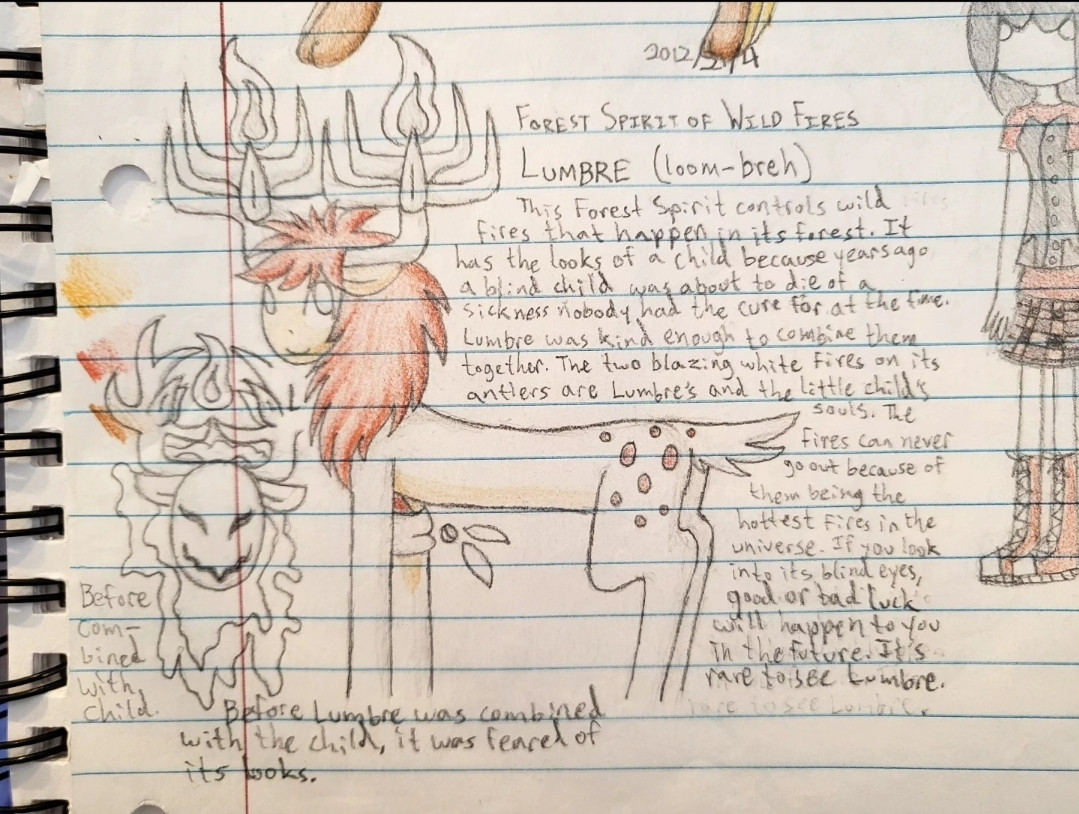 2012/2/4
FOREST SPIRIT OF WILD FIRES
LUMBRE (loom-breh)
This Forest Spirit controls wild
fires that happen in its forest. It
has the looks of a child because years ago
a blind child was about to die of a
sickness nobody had the cure for at the time.
Lumbre was kind enough to combine them
together. The two blazing white fires on its
antlers are Lumbre's and the little child's
souls. The
fires can never
go out because of
them being the
hottest fires in the
universe. If you look
into its blind eyes,
good or bad luck
will happen to you
in the future. It's
rare to see Lumbre.
Before
com-
bined
with
child.
Before Lumbre was combined
with the child, it was feared of
its looks.